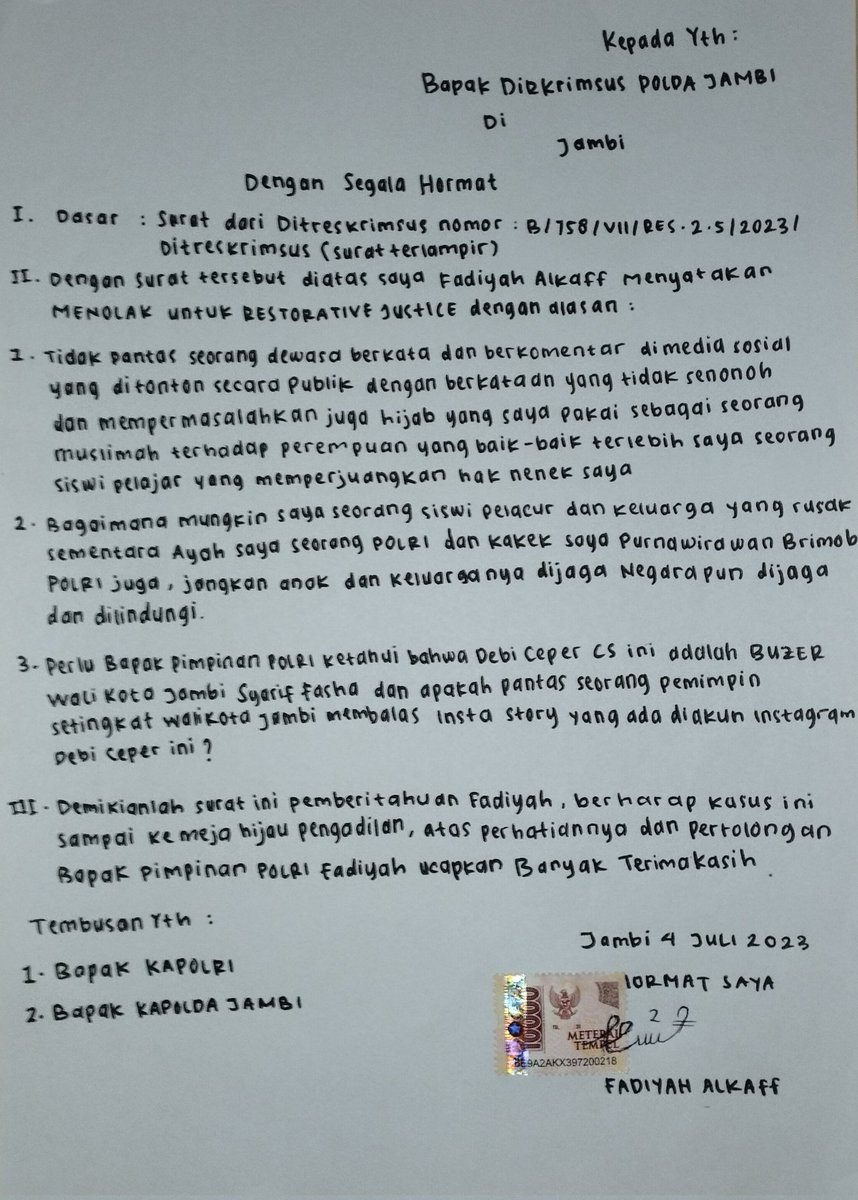 Kepada Yth :
Bapak Dirkrimsus POLDA JAMBI
Di
Jambi
Dengan Segala Hormat
I. Dasar : Surat dari Ditreskrimsus nomor : B/758/VII/RES.2.5/2023/
Ditreskrimsus (surat terlampir)
II. Dengan surat tersebut diatas saya Fadiyah Alkaff Menyatakan
MENOLAK untuk RESTORATIVE JUSTICE dengan alasan :
1. Tidak pantas seorang dewasa berkata dan berkomentar dimedia sosial
yang ditonton secara Publik dengan berkataan yang tidak senonoh
dan mempermasalahkan juga hijab yang saya pakai sebagai seorang
muslimah terhadap perempuan yang baik-baik terlebih saya seorang
siswi pelajar yang memperjuangkan hak nenek saya
2. Bagaimana mungkin saya seorang siswi pelacur dan keluarga yang rusak
sementara Ayah saya seorang POLRI dan kakek saya Purnawirawan Brimob
POLRI juga, jangkan anak dan keluarganya dijaga Negara pun dijaga
dan dilindungi.
3. Perlu Bapak Pimpinan POLRI ketahui bahwa Debi Ceper CS ini adalah BUZER
Wali Kota Jambi Syarif fasha dan apakah pantas seorang pemimpin
setingkat walikota Jambi membalas Insta Story yang ada diakun Instagram
Debi Ceper ini ?
III. Demikianlah surat ini pemberitahuan Fadiyah, berharap kasus ini
sampai ke meja hijau pengadilan, atas perhatiannya dan pertolongan
Bapak Pimpinan POLRI Fadiyah ucapkan Banyak Terimakasih.
Tembusan Yth :
1. Bapak KAPOLRI
2. Bapak KAPOLDA JAMBI
Jambi 4 JULI 2023
HORMAT SAYA
10000
METERAI
TEMPEL
9A2AKX397200218
FADIYAH ALKAFF